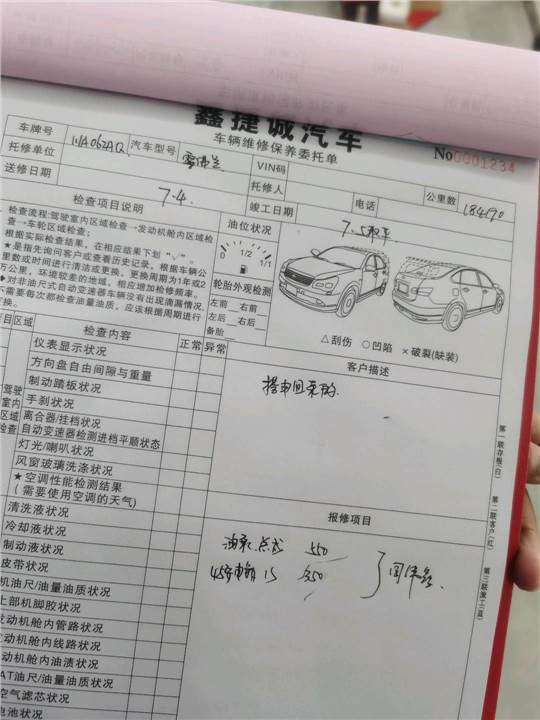 鑫捷诚汽车
车辆维修保养委托单
No0001234
车牌号
汽车型号
VIN码
公里数 184190
托修单位
托修人
电话
送修日期 7-4.
竣工日期 7.5取车
检查项目说明
油位状况
检查流程:驾驶室内区域检查→发动机舱内区域检
查→车轮区域检查;
根据实际检查结果,在相应结果下划"√"。
★是指先询问客户或查看历史记录。根据车辆公
里数或时间进行清洁或更换,更换周期为1年或2
万公里,环境较差的地域,相应增加检修频率。
◆对非油尺式自动变速器车辆没有出现滴漏情况,
不需要每次都检查油量油质。应该根据周期进行
更换。
1/2 1/1
轮胎外观检测
左前 右前
左后 右后
备胎
△刮伤 ○凹陷 ×破裂(缺装)
项目区域
检查内容
正常 异常
客户描述
驾驶
室内
区域
检查
仪表显示状况
方向盘自由间隙与重量
制动踏板状况
手刹状况
离合器/挂档状况
自动变速器检测进档平顺状态
灯光/喇叭状况
风窗玻璃洗涤状况
★空调性能检测结果
(需要使用空调的天气)
清洗液状况
冷却液状况
制动液状况
皮带状况
机油尺/油量油质状况
上部机脚胶状况
发动机舱内管路状况
发动机舱内线路状况
发动机舱内油渍状况
AT油尺/油量油质状况
空气滤芯状况
电池状况
报修项目
550
350
第一联存根(白)
第二联客户(红)
第三联施工(蓝)